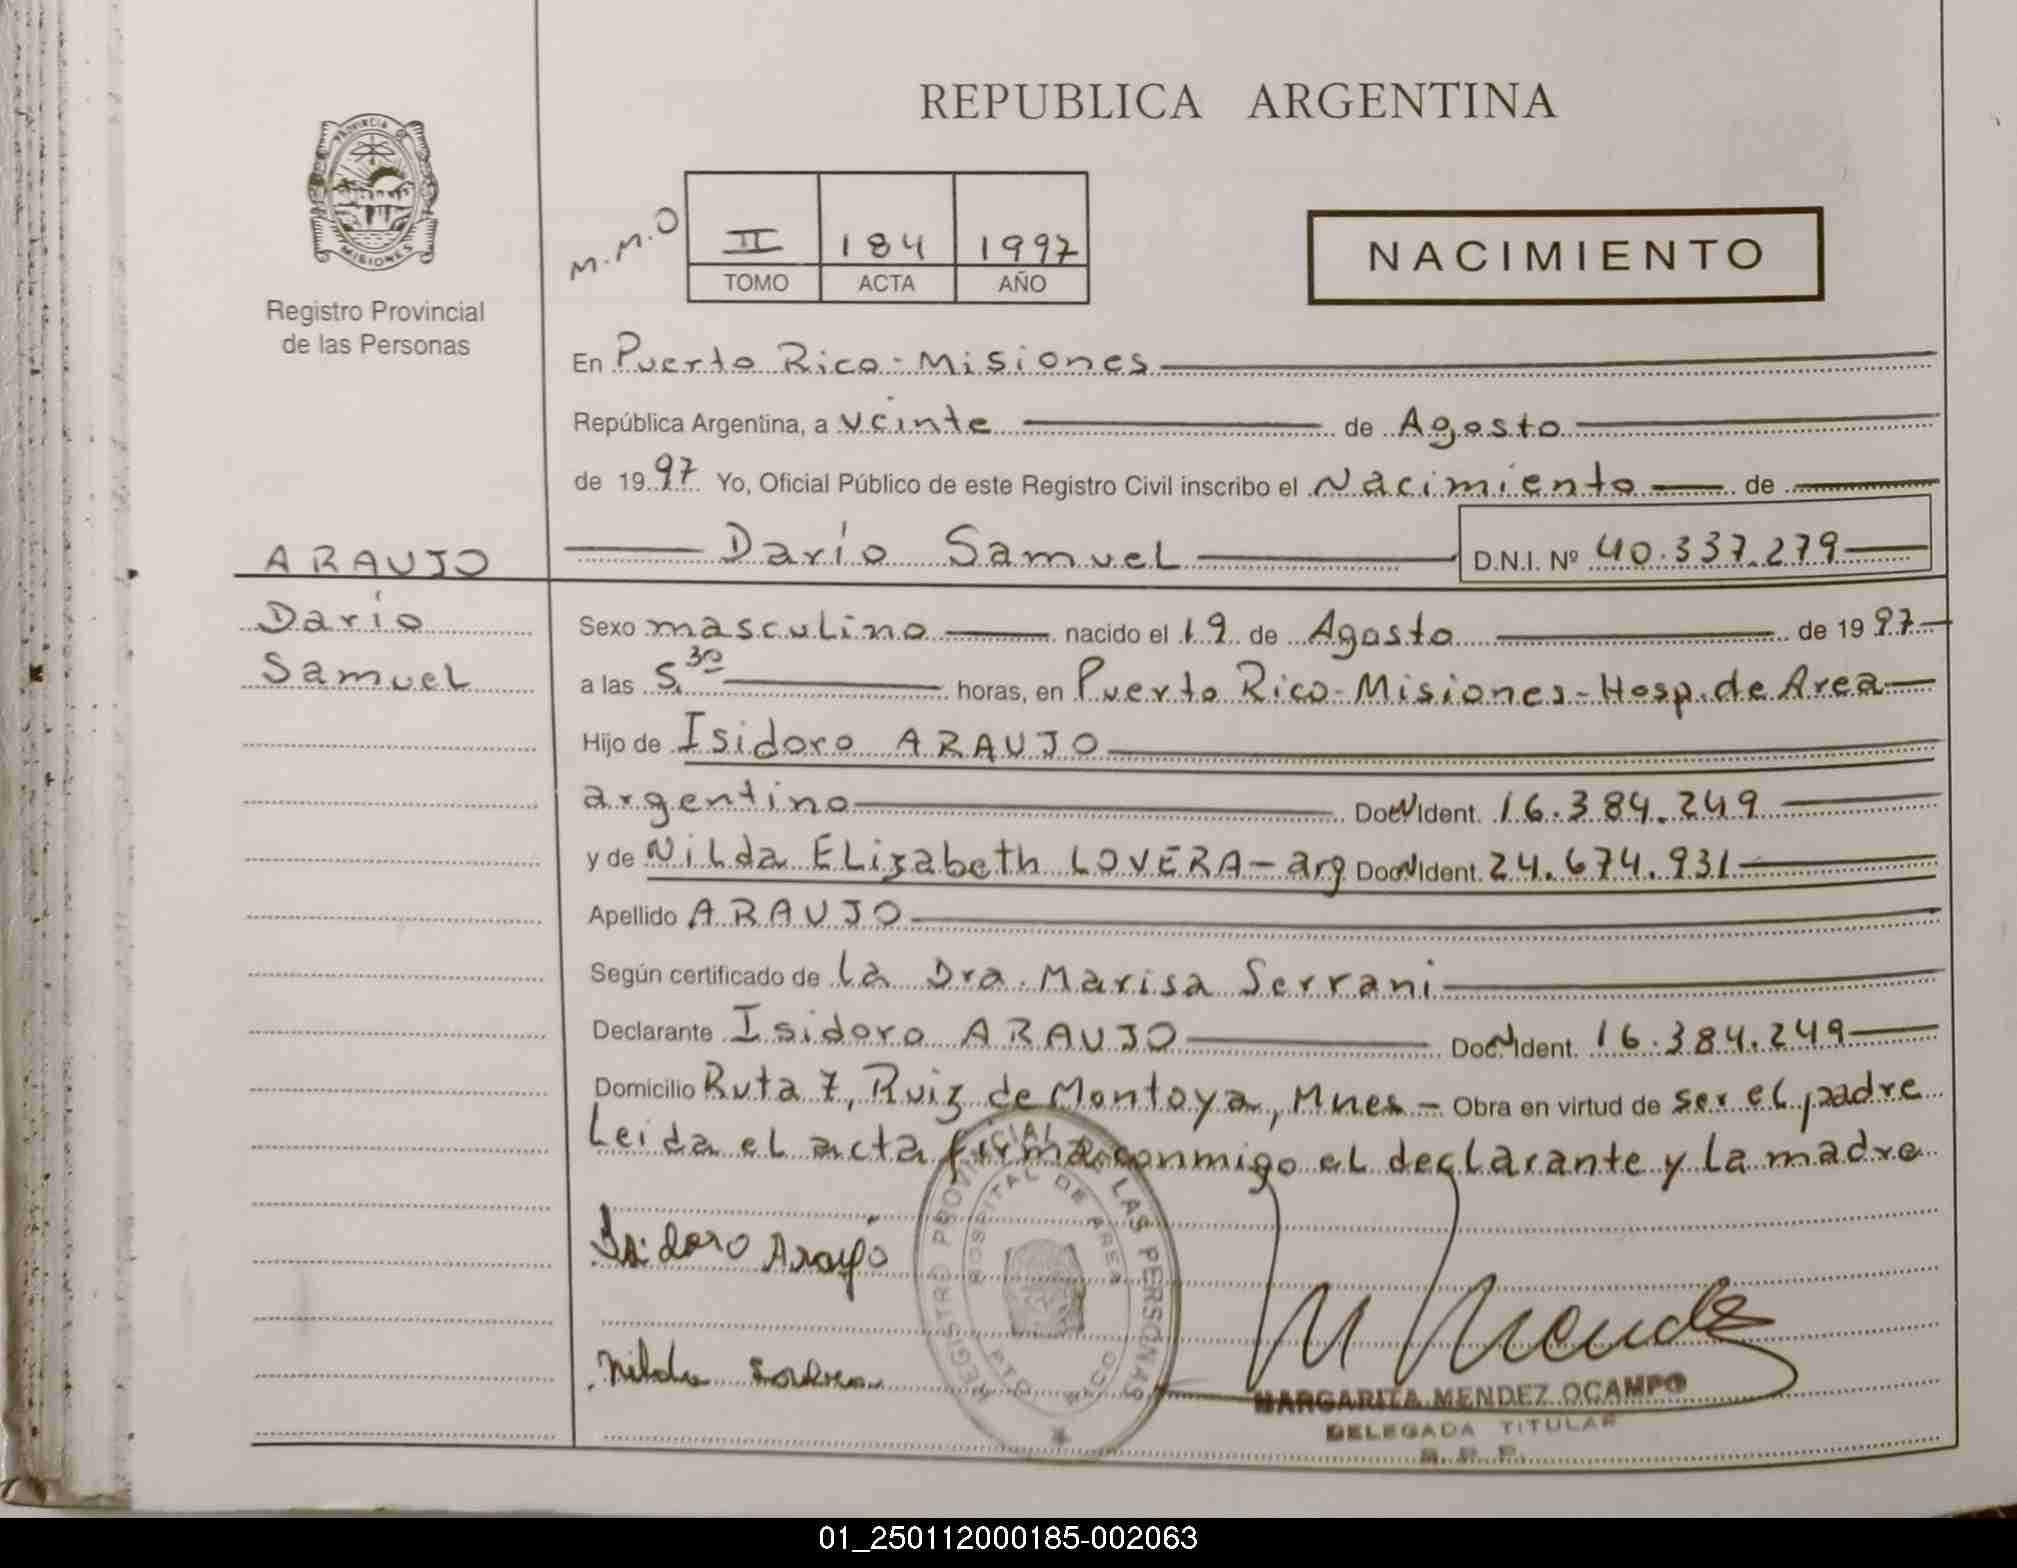 REPUBLICA ARGENTINA
PROVINCIA DE MISIONES
Registro Provincial
de las Personas
M.M.O
II 184 1997
TOMO ACTA AÑO
NACIMIENTO
En Puerto Rico - Misiones
República Argentina, a veinte de Agosto
de 1997 Yo, Oficial Público de este Registro Civil inscribo el Nacimiento de
ARAUJO Darío Samuel D.N.I. Nº 40.337.279
Darío
Samuel
Sexo masculino nacido el 19 de Agosto de 1997
a las 5.30 horas, en Puerto Rico - Misiones - Hosp. de Area
Hijo de Isidoro ARAUJO
argentino Doc N Ident. 16.384.249
y de Nilda Elizabeth LOVERA - arg Doc N Ident. 24.674.931
Apellido ARAUJO
Según certificado de la Dra. Marisa Serrani
Declarante Isidoro ARAUJO Doc N Ident. 16.384.249
Domicilio Ruta 7, Ruiz de Montoya, Mnes - Obra en virtud de ser el padre
Leida el acta firma conmigo el declarante y la madre
Isidoro Araujo
REGISTRO PROVINCIAL DE LAS PERSONAS
HOSPITAL DE AREA
PTO. RICO
M Mendez
Nilda
MARGARITA MENDEZ OCAMPO
DELEGADA TITULAR
R. P. P.
01_250112000185-002063